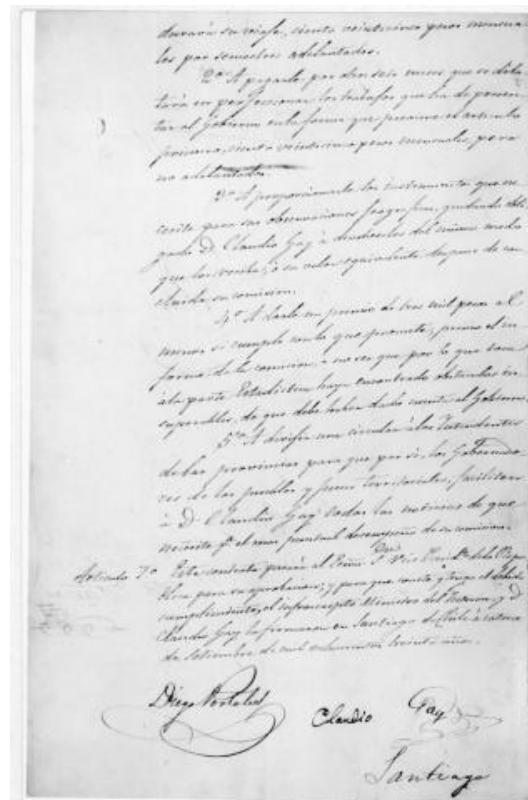 durará su viaje, ciento veinticinco pesos mensua-
les por semestres adelantados.
2º A pagarle por dos seis meses que se dila-
tará en perfeccionar los trabajos que ha de presen-
tar al Gobierno en la forma que previene el artículo
primero, ciento veinticinco pesos mensuales, pero
no adelantados.
3º A proporcionarle los instrumentos que ne-
cesite para sus observaciones geograficas, quedando obli-
gado Dn Claudio Gay à devolverlos del mismo modo
que los reciba, ò su valor equivalente despues de con-
cluida su comision.
4º A darle un premio de tres mil pesos al
menos si cumple con lo que promete, previo el in-
forme de la comision, a no ser que por lo que toca
à la parte Estadistica haya encontrado obstaculos in-
superables, de que debe haber dado cuenta al Gobierno.
5º A dirijir una circular à los Intendentes
de las provincias para que por si, los Gobernado-
res de los pueblos y jueces territoriales, faciliten
à Dn Claudio Gay todas las noticias de que
necesite pª el mas puntual desempeño de su comision.
Articulo 7º Esta contrata pasará al Señor Vice Presidte de la Repu-
blica para su aprobacion; y para que conste y tenga el debido
cumplimiento, el infrascripto Ministro del Interior, y D
Claudio Gay lo firmaron en Santiago de Chile à catorce
de setiembre de mil ochocientos treinta años.
Diego Portales
Claudio Gay
Santiago